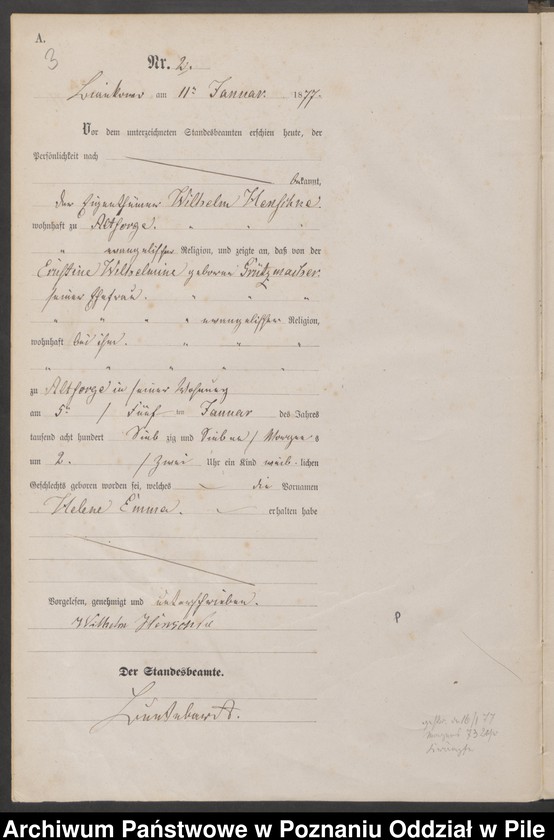 A.
3
Nr. 2.
am 11ten Januar 1877.
Vor dem unterzeichneten Standesbeamten erschien heute, der
Persönlichkeit nach
bekannt,
der Eigenthümer Wilhelm Henschke.
wohnhaft zu Altsorge.
evangelischer Religion, und zeigte an, daß von der
Ernstine Wilhelmine geborne Grützmacher.
seiner Ehefrau.
evangelischer Religion,
wohnhaft bei ihm.
zu Altsorge in seiner Wohnung
am 5ten / Fünf ten Januar des Jahres
tausend acht hundert Sieb zig und Sieben / Morgens
um 2. / Zwei Uhr ein Kind weib lichen
Geschlechts geboren worden sei, welches die Vornamen
Helene Emma. erhalten habe
Vorgelesen, genehmigt und unterschrieben.
Wilhelm Henschke
P
Der Standesbeamte.
Archiwum Państwowe w Poznaniu Oddział w Pile